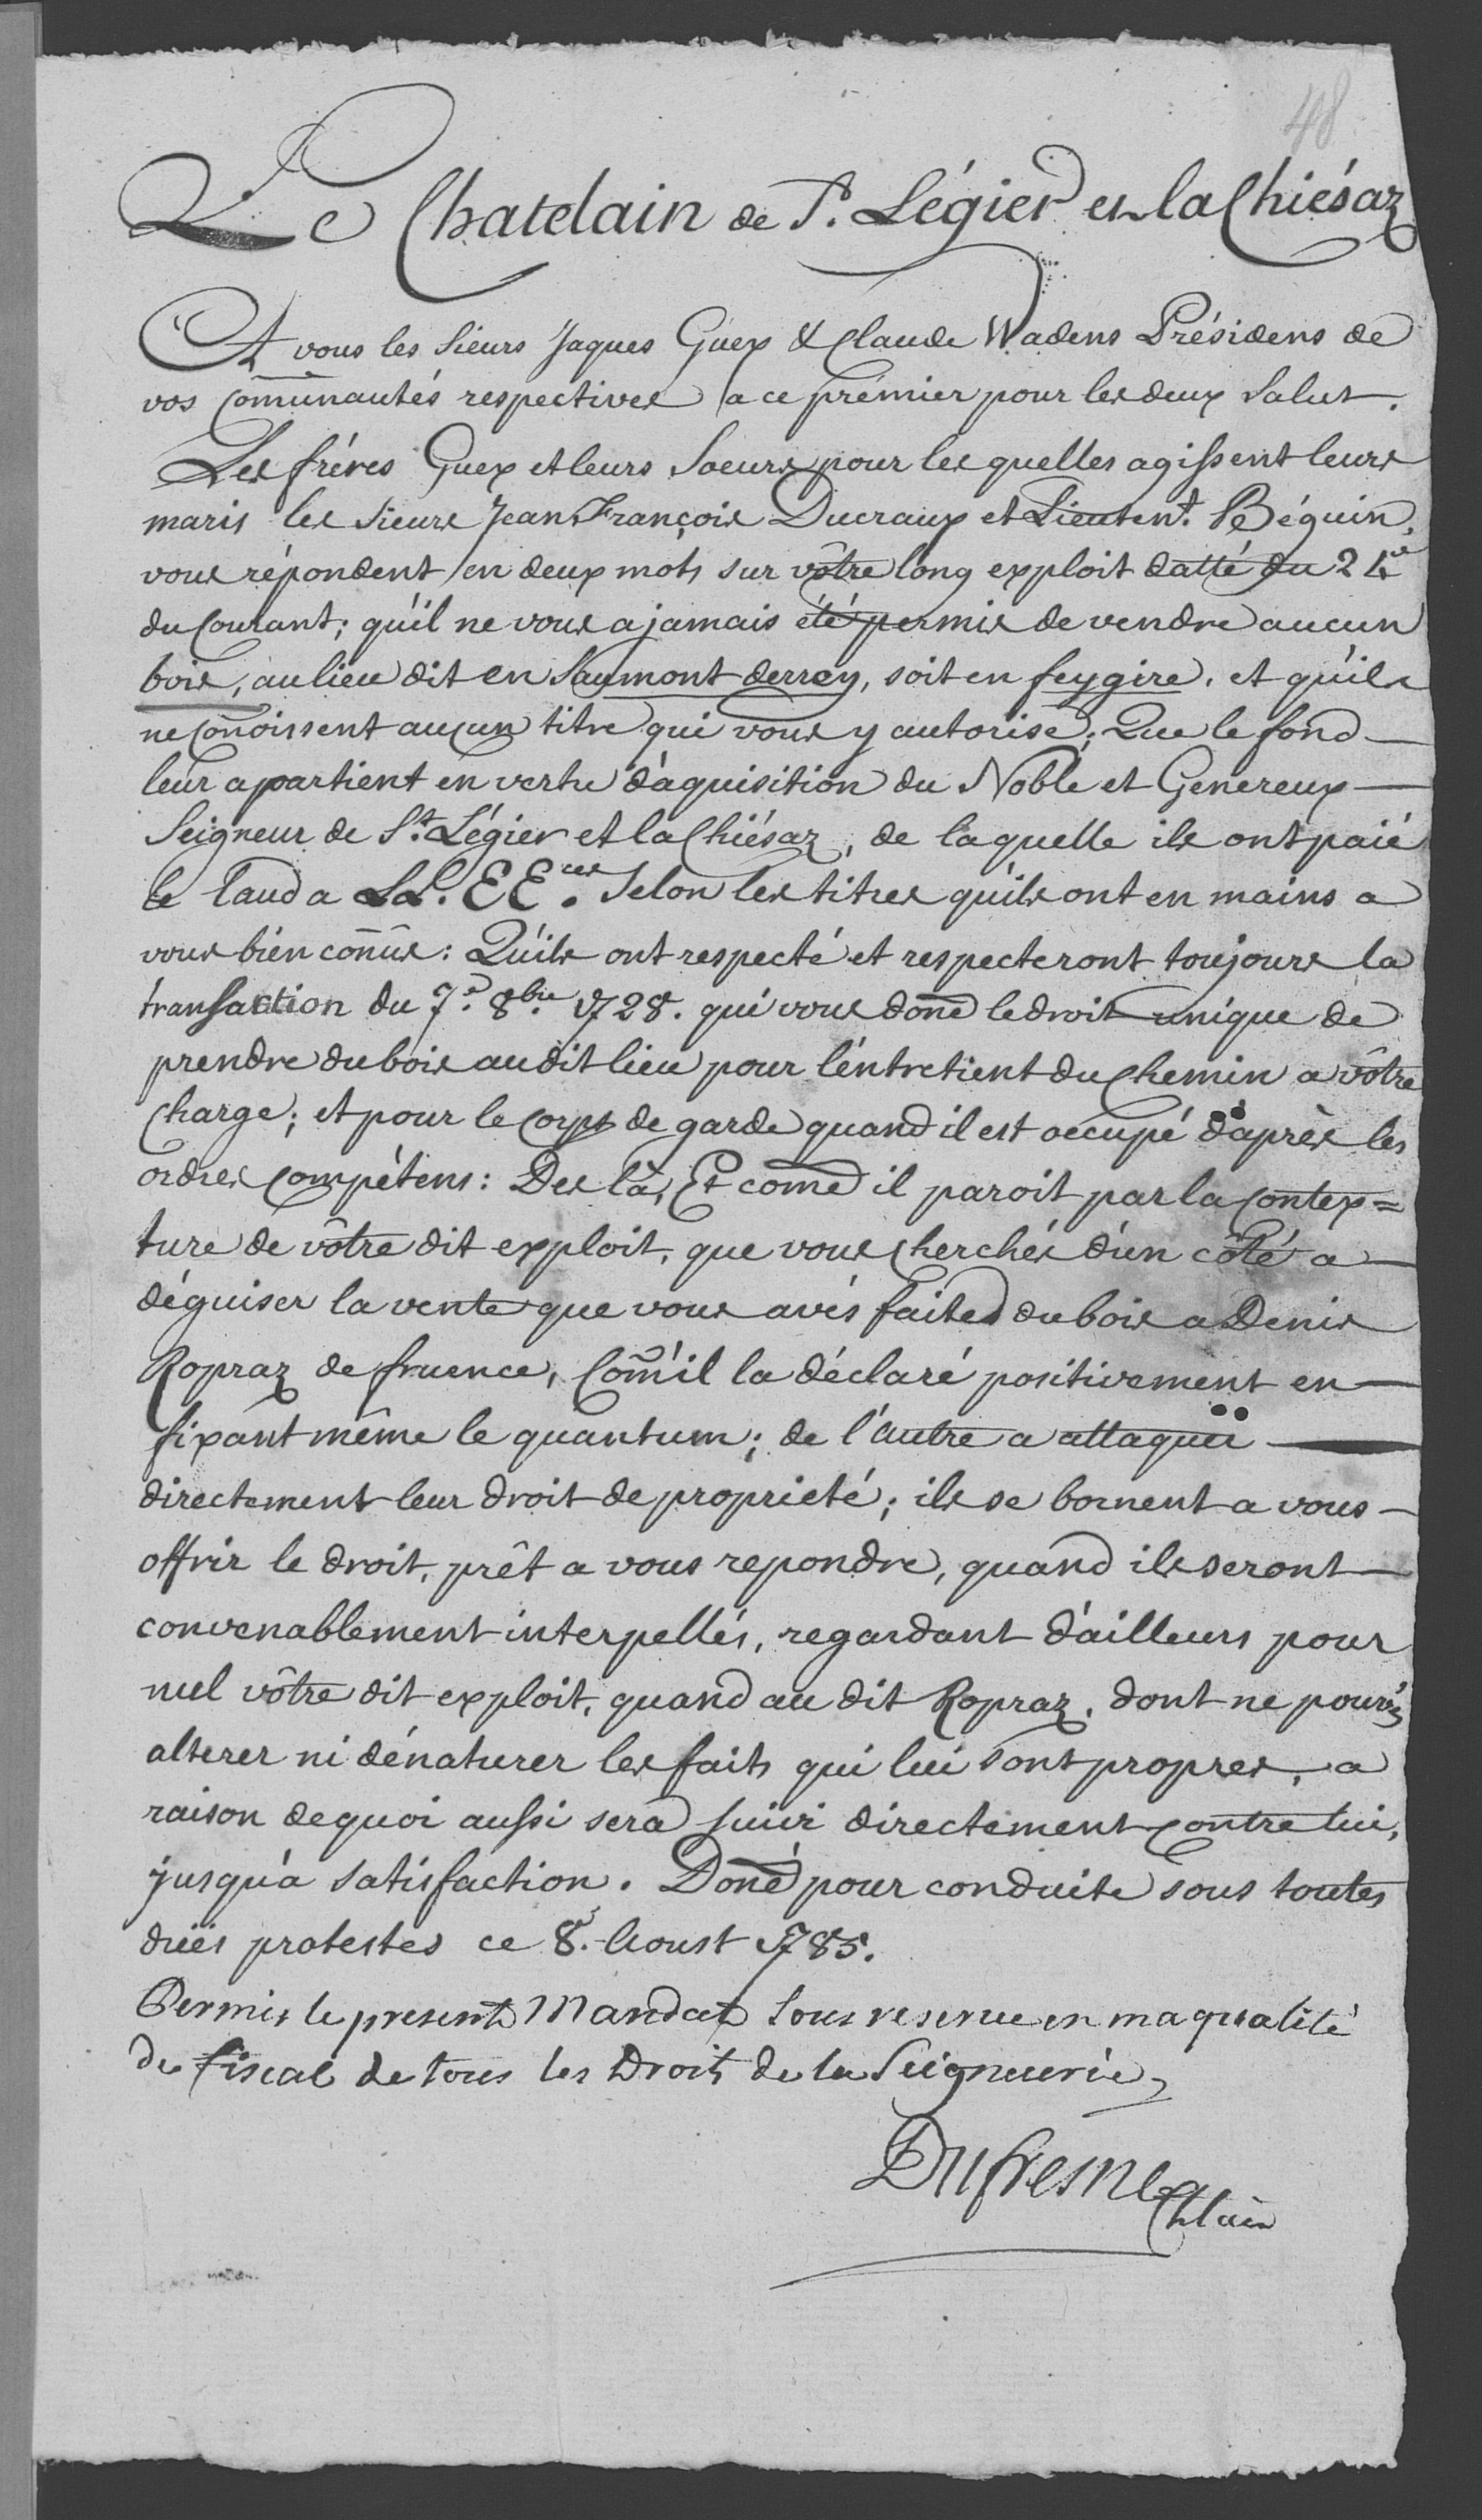 48
Le Chatelain de St. Légier et la Chiésaz
A vous les Sieurs Jaques Guex & Claude Wadens Présidens de
vos com̄unautés respectives a ce prémier pour les deux Salut.
Les fréres Guex et leurs Soeurs pour les quelles agissent leurs
maris les Sieurs Jean François Ducraux et Lieutent. Béguin,
vous répondent en deux mots sur vôtre long exploit datté du
du Courant; qu'il ne vous a jamais été permis de vendre aucun
bois, au lieu dit en Saumont derrey, soit en feygire. et qu'ils
ne con̄oissent aucun titre qui vous y autorise; Que le fond
leur apartient en vertu d'aquisition du Noble et Genereux
Seigneur de St. Légier et la Chiésaz, de laquelle ils ont paié
le laud a LL. EE.ces Selon les titres qu'ils ont en mains a
vous bién con̄us: Qu'ils ont respecté et respecteront toujours la
transaction du 7e. 8bre. 1728. qui vous don̄e le droit unique de
prendre du bois au dit lieu pour l'éntretient du Chemin a vôtre
Charge; et pour le Corps de garde quand il est occupé d'après les
ordres Compétens: Des là, Et com̄e il paroit par la Contex=
ture de vôtre dit exploit, que vous cherchés d'un côté a
déguiser la vente que vous avés faites du bois a Denis
Ropraz de fruence, Com̄'il la déclaré positivement en
fixant même le quantum; de l'autre a attaquer
directement leur droit de proprieté; ils se bornent a vous
offrir le droit, prêt a vous repondre, quand ils seront
convenablement interpellés, regardant d'ailleurs pour
nul vôtre dit exploit, quand au dit Ropraz, dont ne pourés
alterer ni dénaturer les faits qui lui sont propres, a
raison dequoi aussi sera suivi directement contre lui,
jusqu'à satisfaction. Don̄é pour conduite sous toutes
dües protestes ce 8e. Aoust 1785.
Permis le present Mandat sous reserve en ma qualité
de fiscal de tous les Droits de la Seigneurie,
Dufresne
Chlain